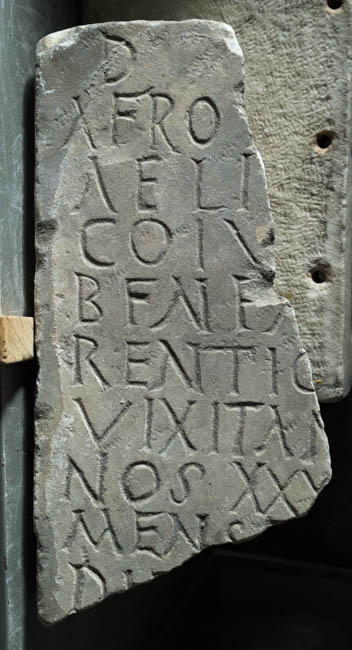 D
AFRO
AELI
COIV
BENE
RENTIO
VIXITA
NOS XXX
MENS
DI